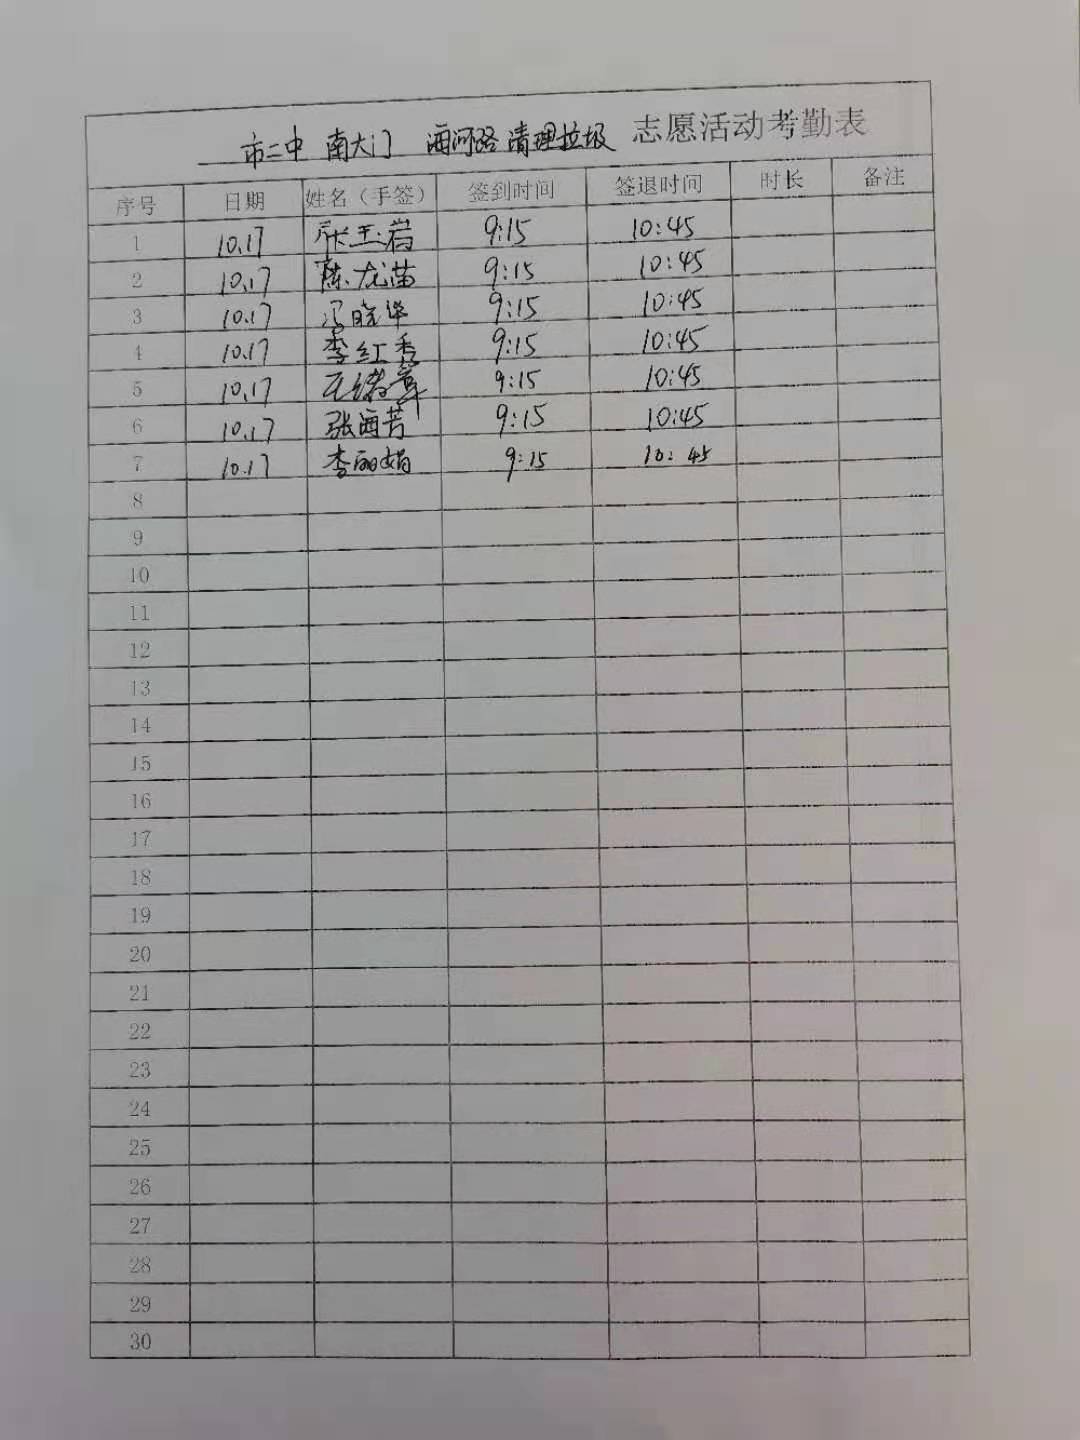 市二中 南大门 海河路 清理垃圾 志愿活动考勤表
序号 日期 姓名（手签） 签到时间 签退时间 时长 备注
1 10.17 张玉岩 9:15 10:45
2 10.17 陈龙苗 9:15 10:45
3 10.17 冯晓华 9:15 10:45
4 10.17 李红秀 9:15 10:45
5 10.17 9:15 10:45
6 10.17 张海芳 9:15 10:45
7 10.17 李丽娟 9:15 10:45
8
9
10
11
12
13
14
15
16
17
18
19
20
21
22
23
24
25
26
27
28
29
30